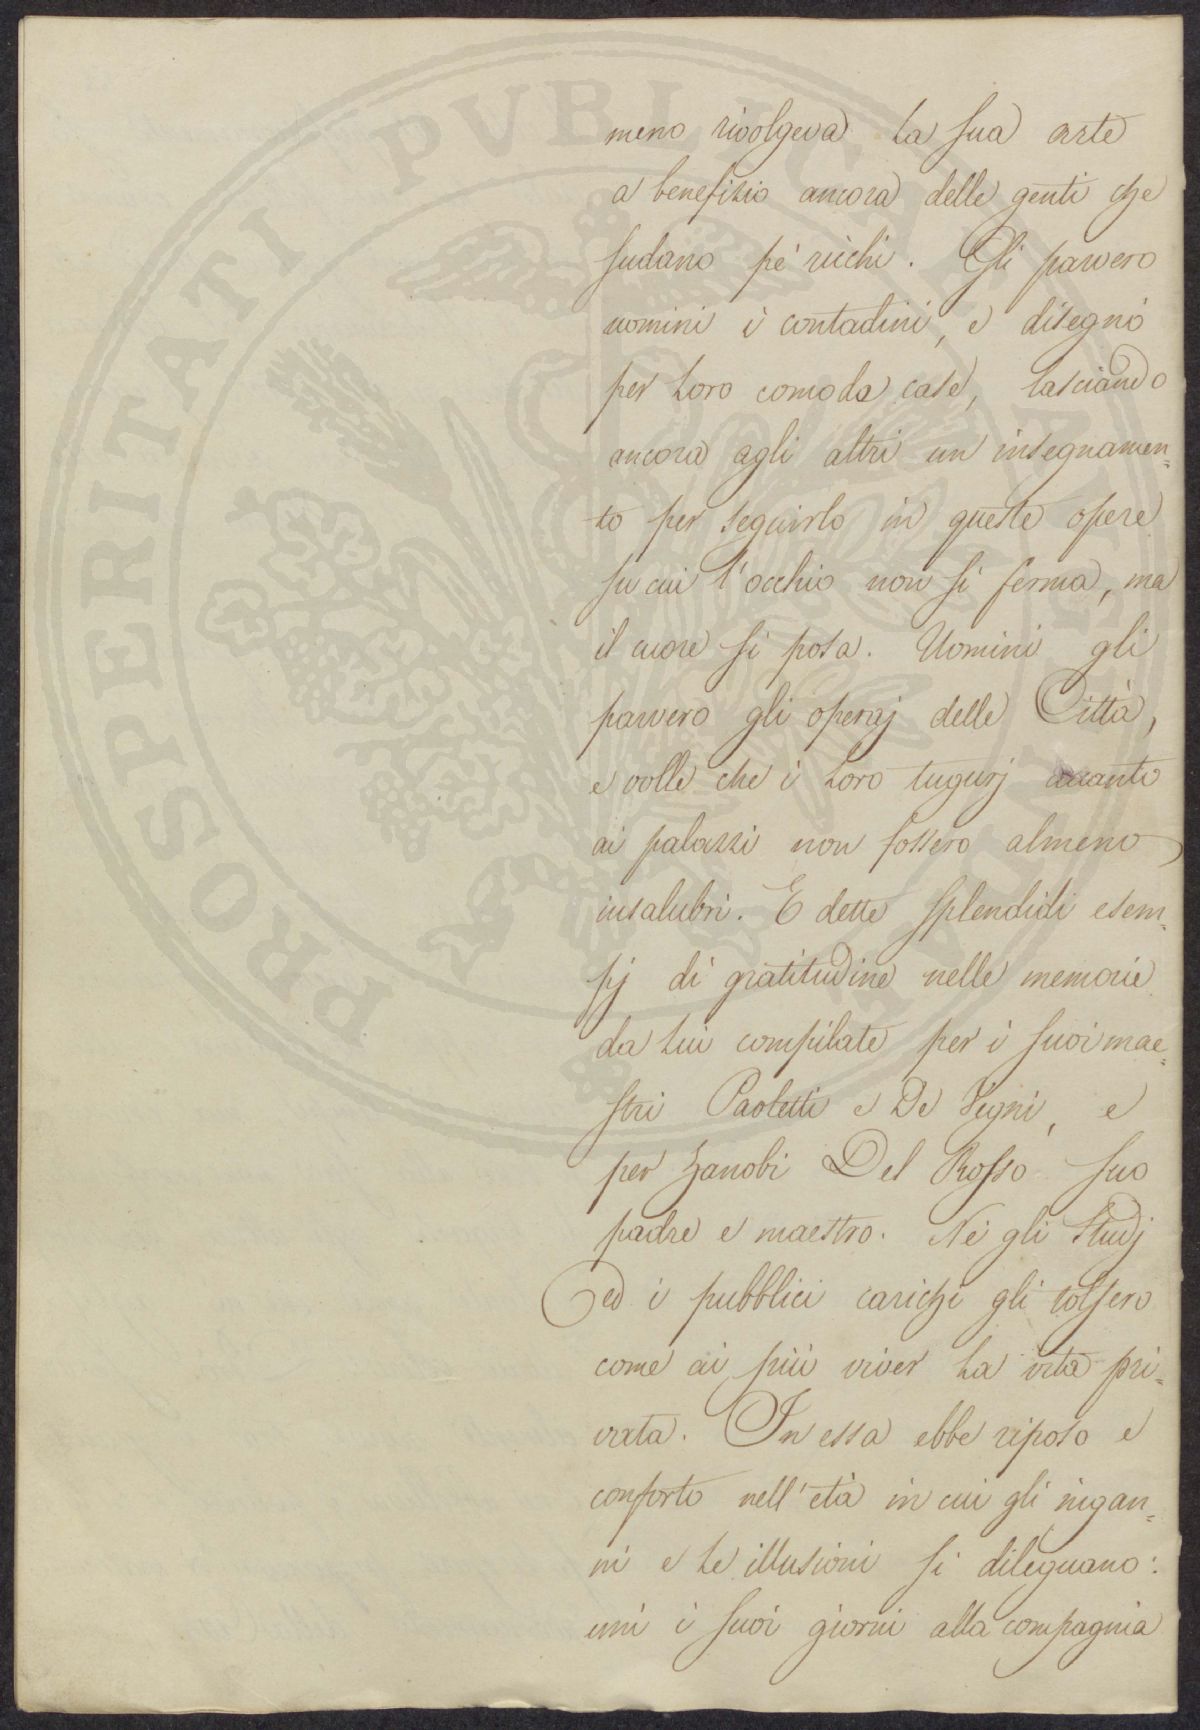 meno rivolgeva la sua arte
a benefizio ancora delle genti che
sudano pe' ricchi. Gli parvero
uomini i contadini, e disegnò
per loro comoda case, lasciando
ancora agli altri un insegnamen=
to per seguirlo in queste opere
su cui l'occhio non si ferma, ma
il cuore si posa. Uomini gli
parvero gli operaj delle Città,
e volle che i loro tugurj accanto
ai palazzi non fossero almeno
insalubri. E dette splendidi esem=
pj di gratitudine nelle memorie
da lui compilate per i suoi mae=
stri Paoletti e De Vegni, e
per Zanobi Del Rosso suo
padre e maestro. Nè gli Studj
ed i pubblici carichi gli tolsero
come ai più viver la vita pri=
vata. In essa ebbe riposo e
conforto nell'età in cui gli ingan=
ni e le illusioni si dileguano:
unì i suoi giorni alla compagnia
PROSPERITATI PVBLICAE